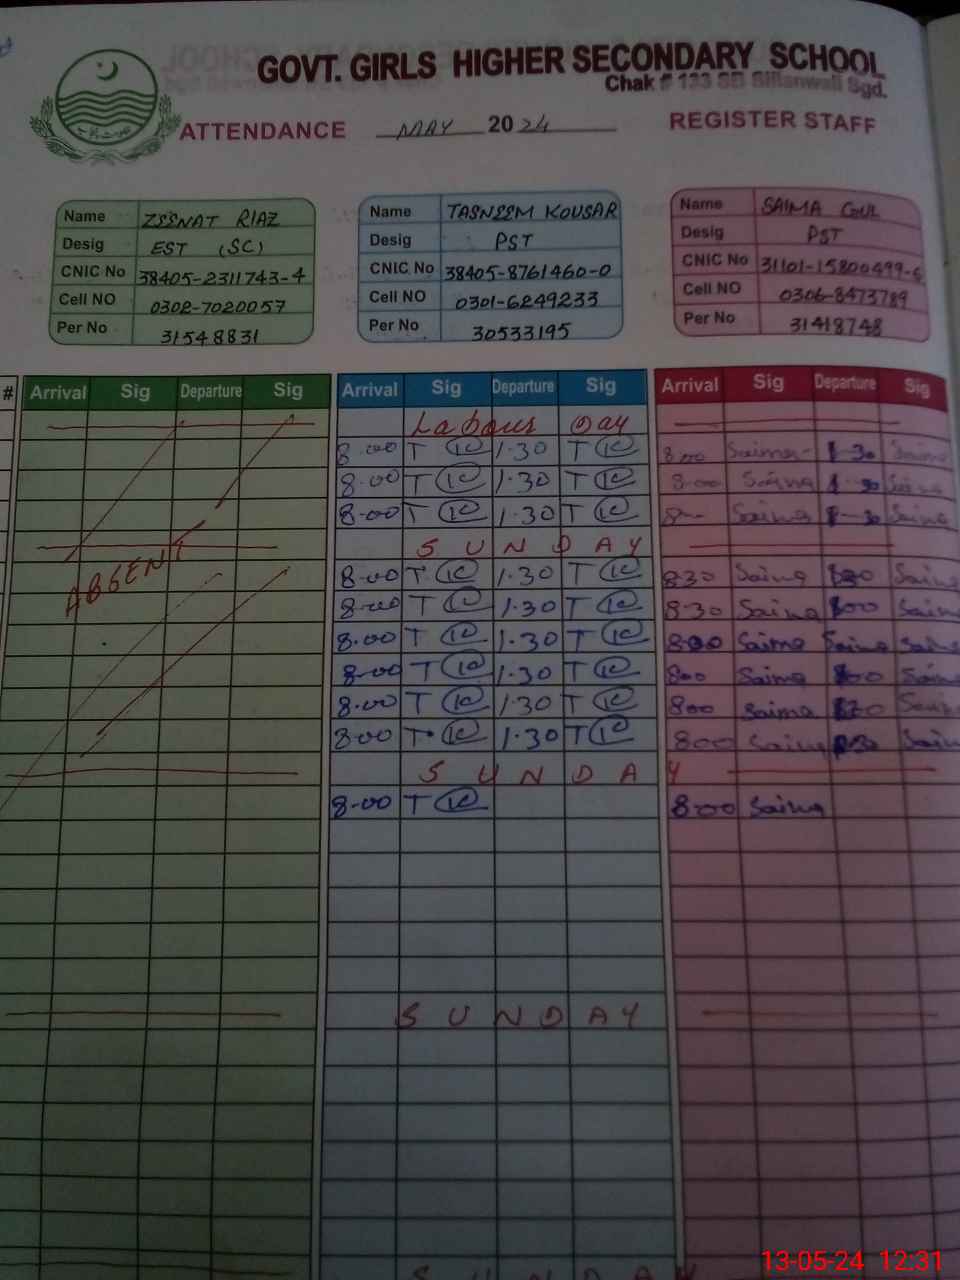 GOVT. GIRLS HIGHER SECONDARY SCHOOL
Chak # 133 SB Sillanwali Sgd.
ATTENDANCE MAY 2024 REGISTER STAFF
Name ZEENAT RIAZ
Desig EST (SC)
CNIC No 38405-2311743-4
Cell NO 0302-7020057
Per No 31548831
Name TASNEEM KOUSAR
Desig PST
CNIC No 38405-8761460-0
Cell NO 0301-6249233
Per No 30533195
Name SAIMA GUL
Desig PST
CNIC No 31101-15800499-6
Cell NO 0306-8473789
Per No 31418748
# Arrival Sig Departure Sig Arrival Sig Departure Sig Arrival Sig Departure Sig
Labour Day
8.00 T 1.30 T 8.00 Saima 1-30 Saima
8.00 T 1.30 T 8.00 Saima Saima
8.00 T 1.30 T Saima Saima
SUNDAY
ABSENT
8.00 T 1.30 T 830 Saima Saima
8.00 T 1.30 T 8.30 Saima Saima
8.00 T 1.30 T 800 Saima Saima Saima
8.00 T 1.30 T 800 Saima Saima
8.00 T 1.30 T 800 Saima Saima
8.00 T 1.30 T 800 Saima Saima
SUNDAY
8.00 T 800 Saima
SUNDAY
SUNDAY
13-05-24 12:31